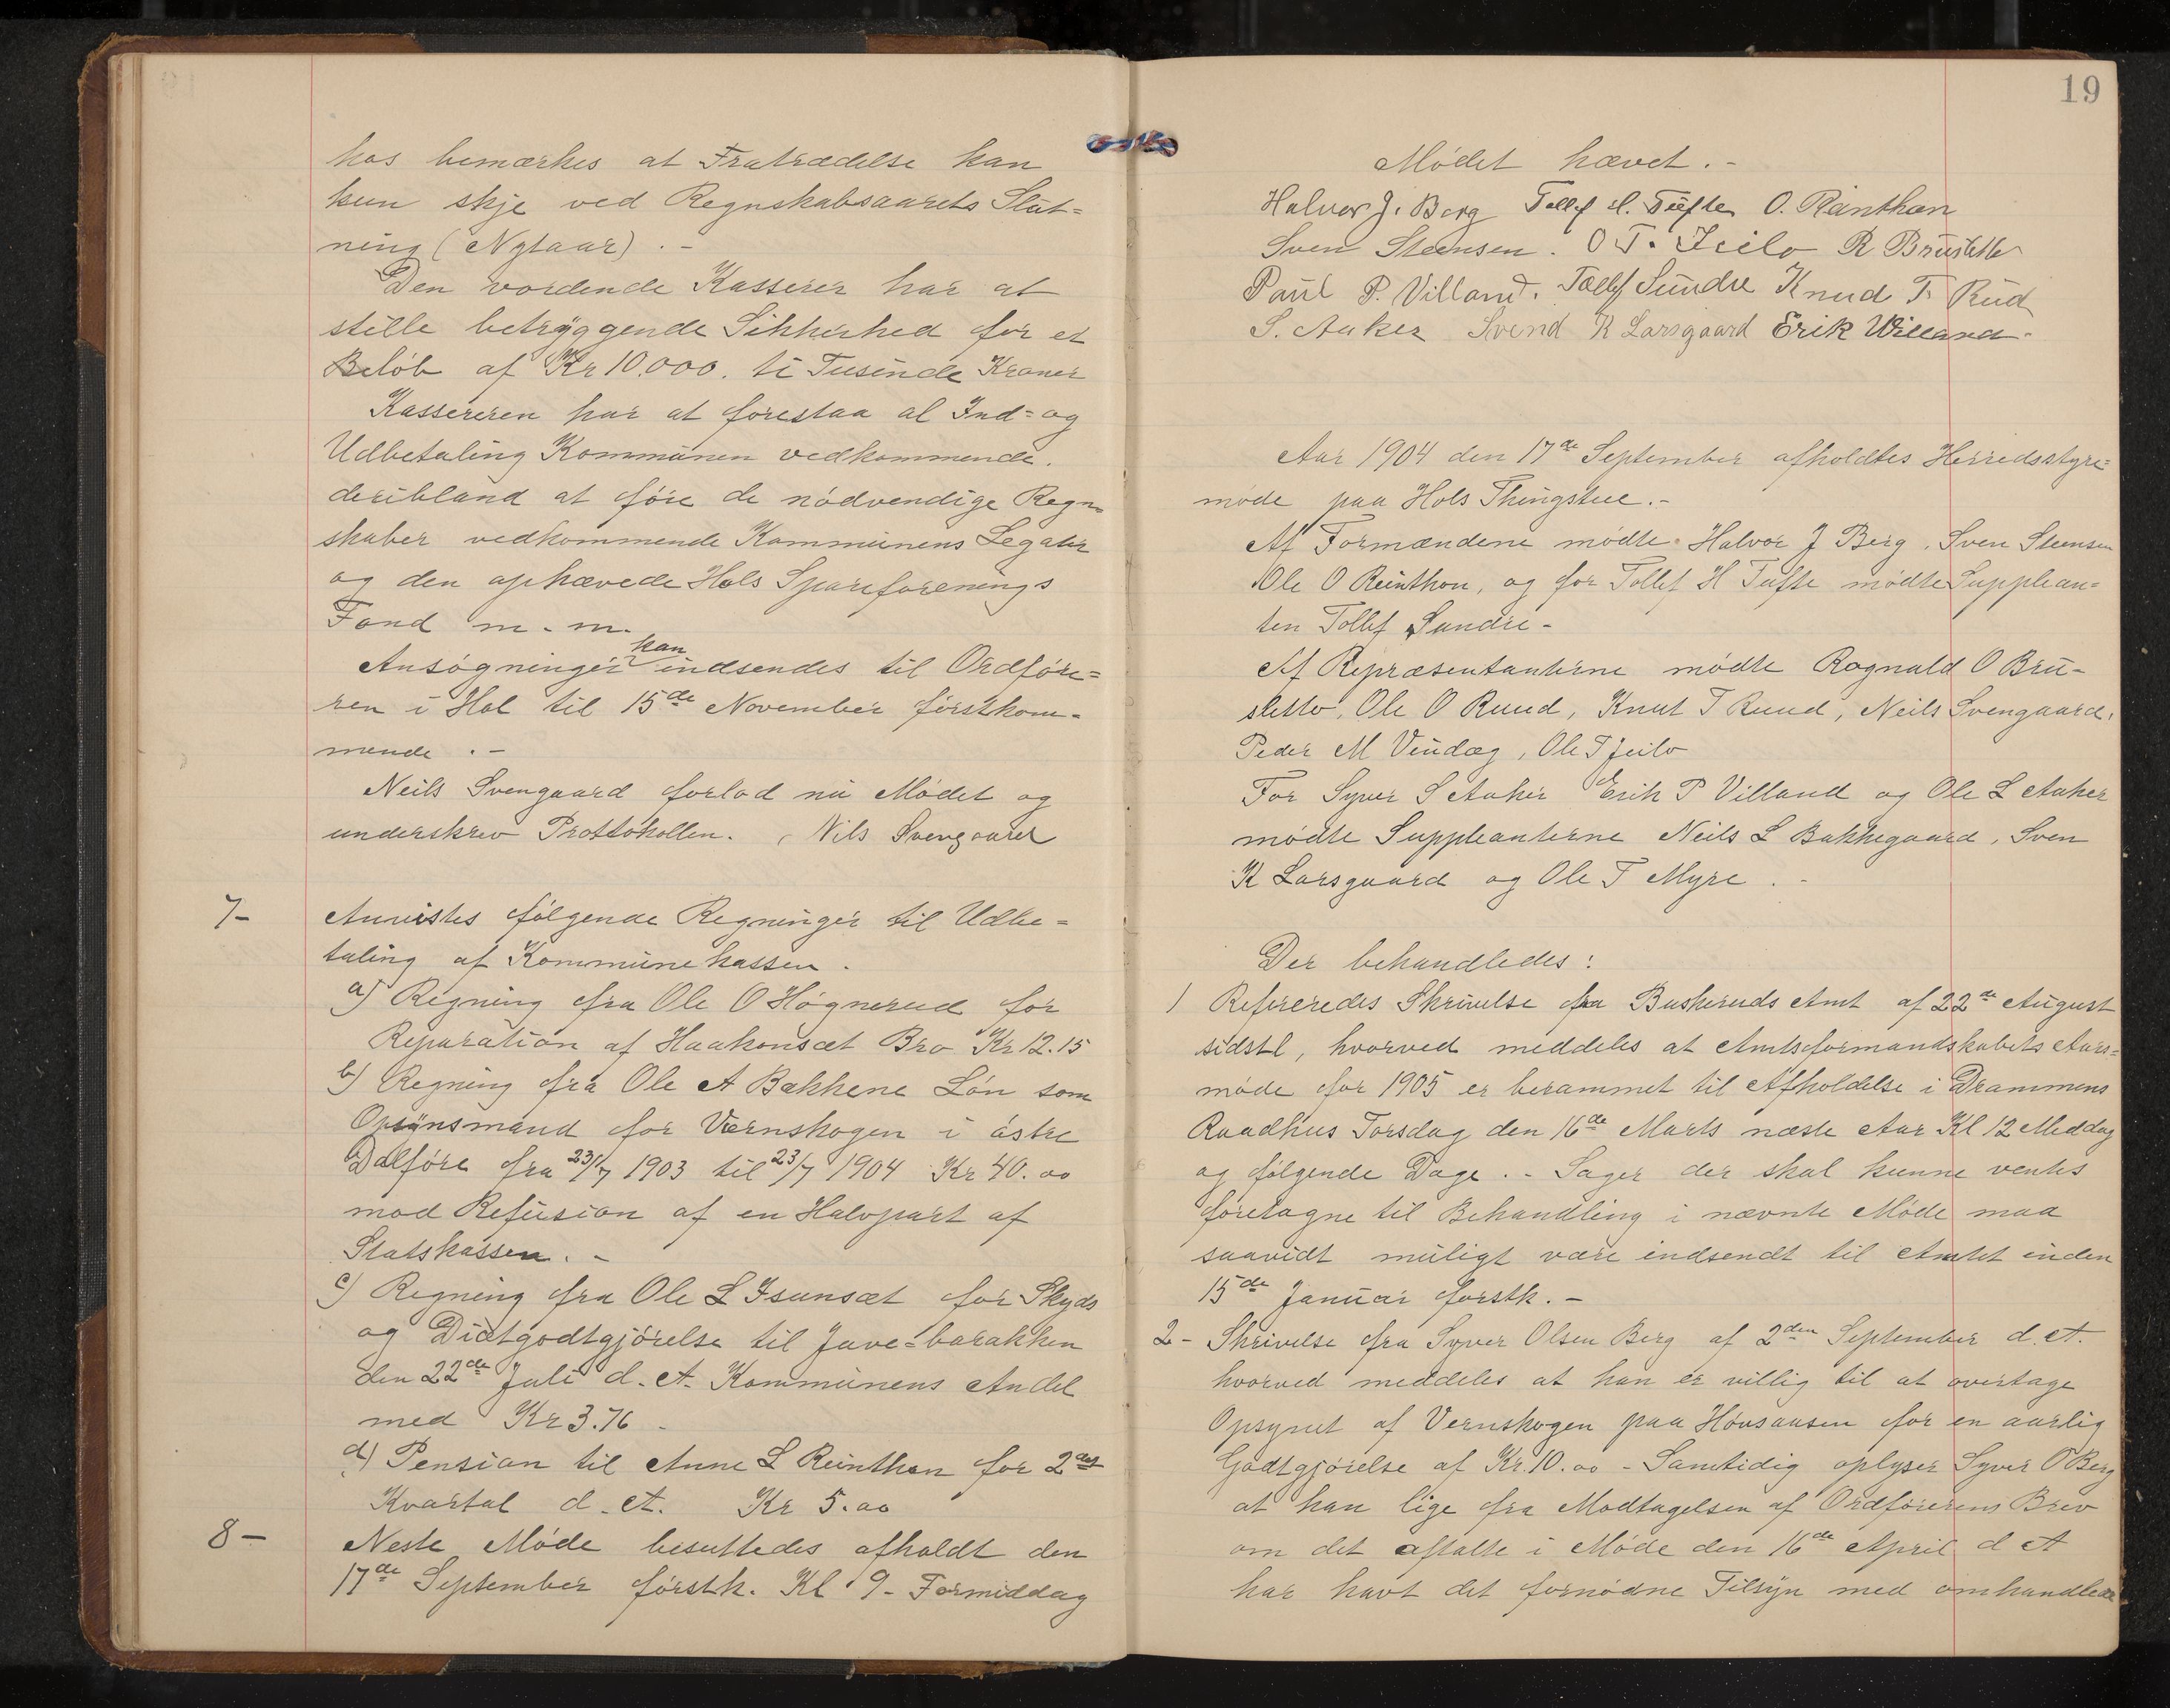 hos bemærkes at Fratrædelse kan
kun skje ved Regnskabsaarets Slut=
ning (Nytaar) . -
Den vordende Kasserer har at
stille betryggende Sikkerhed for et
Beløb af Kr 10.000. ti Tusinde Kroner
Kassereren har at forestaa al Ind= og
Udbetaling Kommunen vedkommende.
deribland at føre de nødvendige Regn=
skaber vedkommende Kommunens Legater
og den ophævede Hols Spareforenings
Fond m. m.
Ansøgninger kan indsendes til Ordføre=
ren i Hol til 15de November førstkom=
mende . -
Neils Svengaard forlod nu Mødet og
underskrev Prottokollen. Nils Svengaard
7- Anvistes følgende Regninger til Udbe=
taling af Kommunekassen .
a) Regning fra Ole O Høgnerud for
Reparation af Haakonsæt Bro Kr 12.15
b) Regning fra Ole A Bakkene Løn som
Opsynsmand for Værnskogen i østre
Dalføre fra 23/7 1903 til 23/7 1904 Kr 40.00
mod Refusion af en Halvpart af
Statskassen. -
c) Regning fra Ole L Isunsæt for Skyds
og Diætgodtgjørelse til Juve=barakken
den 22de Juli d. A. Kommunens Andel
med Kr 3.76 -
d) Pension til Anne L Reinthon for 2det
Kvartal d. A. Kr 5.00
8- Neste Møde besluttedes afholdt den
17de September førstk. Kl 9- Formiddag
19
Mødet hævet. -
Halvor J. Berg Tollef H. Tufte O. Reinthon
Sven Steensen. O T. Jeilo R Brusletto
Paul P. Villand. Tollef Sundre Knud T. Rud
S. Aaker Svend K Larsgaard Erik Willand.
Aar 1904 den 17de September afholdtes Herredsstyre=
møde paa Hols Thingstue.-
Af Formændene mødte Halvor J Berg, Sven Steensen
Ole O Reinthon, og for Tollef H Tufte mødte Supplean=
ten Tollef Sundre -
Af Repræsentanterne mødte Ragnald O Bru-
sletto, Ole O Ruud, Knut T Ruud, Neils Svengaard,
Peder M Vindæg, Ole T Jeilo
For Syver S Aaker Erik P Villand og Ole L Aaker
mødte Suppleanterne Neils L Bakkegaard, Sven
K Larsgaard og Ole T Myre . -
Der behandledes:
1 Refereredes Skrivelse fra Buskeruds Amt af 22de August
sidstl, hvorved meddeles at Amtsformandskabets Aars=
møde for 1905 er berammet til Afholdelse i Drammens
Raadhus Torsdag den 16de Marts næste Aar Kl 12 Middag
og følgende Dage . - Sager der skal kunne ventes
foretagne til Behandling i nævnte Møde maa
saavidt muligt være indsendt til Amtet inden
15de Januar førstk. -
2 - Skrivelse fra Syver Olsen Berg af 2den September d. A.
hvorved meddeles at han er villig til at overtage
Opsynet af Vernskogen paa Hovsaasen for en aarlig
Godtgjørelse af Kr. 10.00 - Samtidig oplyser Syver O Berg
at han lige fra Modtagelsen af Ordførerens Brev
om det aftalte i Møde den 16de April d A
har havt det fornødne Tilsyn med omhandlede